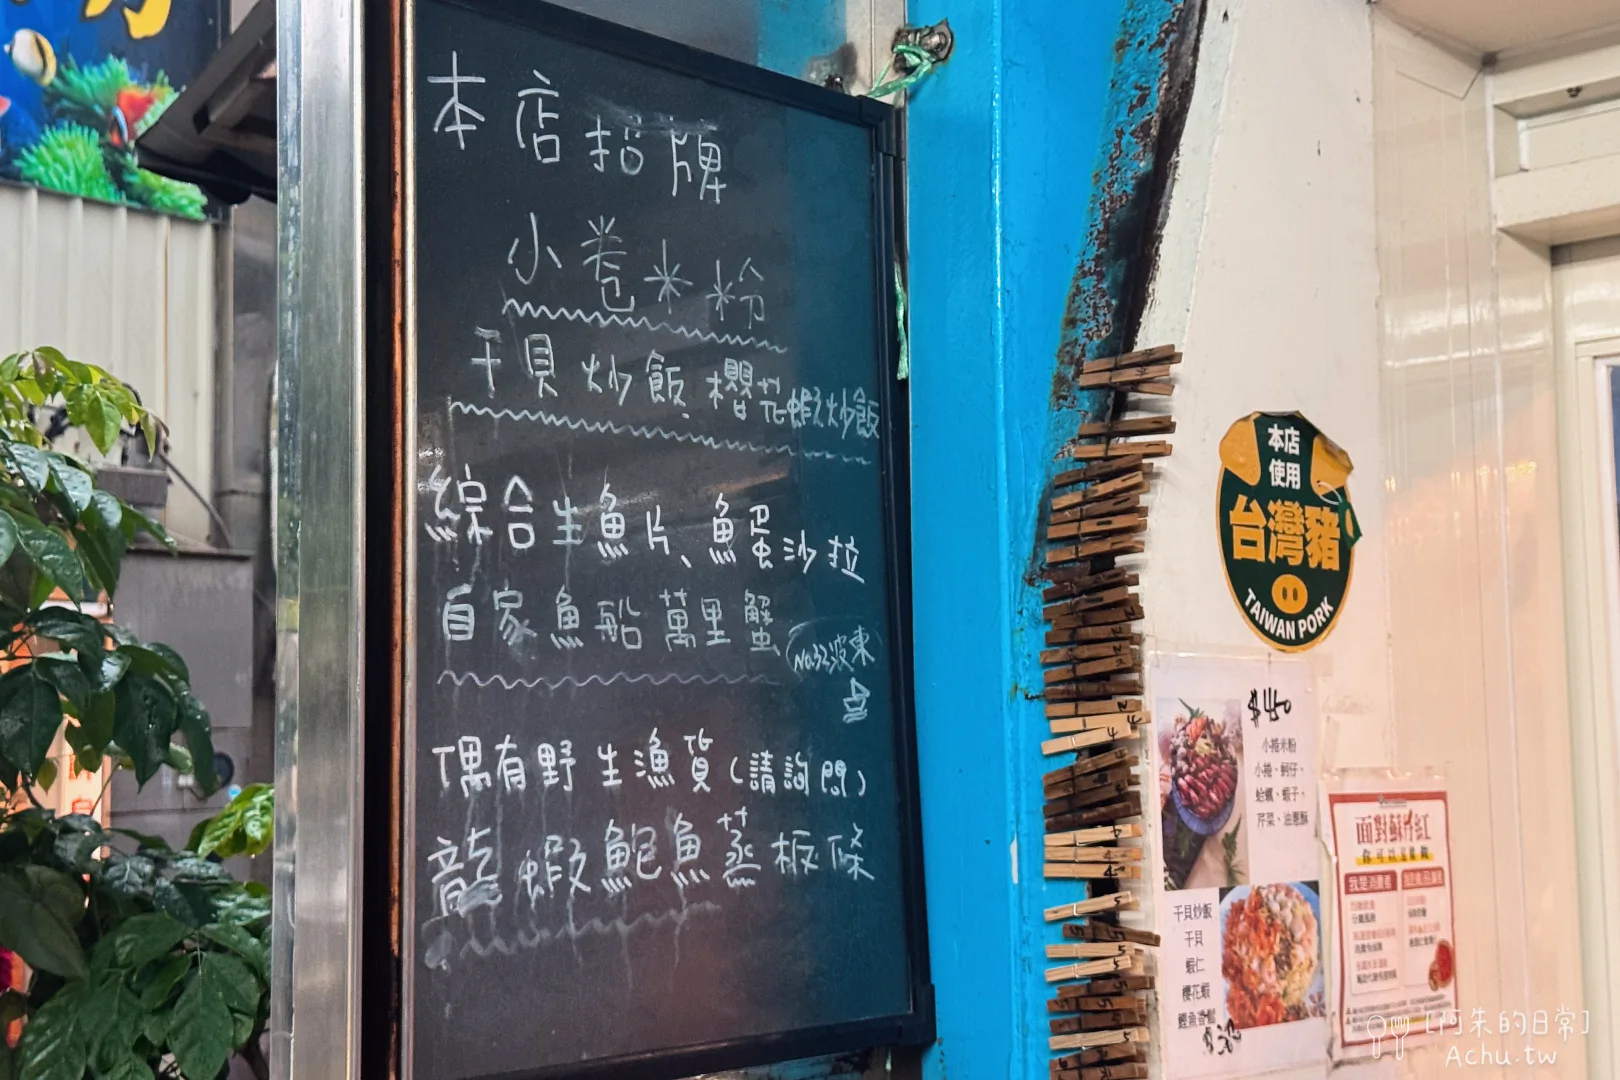 本店招牌
小卷米粉
干貝炒飯、櫻花蝦炒飯
綜合生魚片、魚蛋沙拉
自家魚船萬里蟹
(No.32波東
偶有野生漁貨(請詢問)
龍蝦鮑魚蒸板條
本店
使用
台灣豬
TAIWAN PORK
$450
小捲米粉
小捲、蚵仔、
蛤蠣、蝦子、
芹菜、油蔥酥
干貝炒飯
干貝
蝦仁
櫻花蝦
面對蘇丹紅
你可以這樣做
我是消費者
[阿朱的日常]
Achu.tw